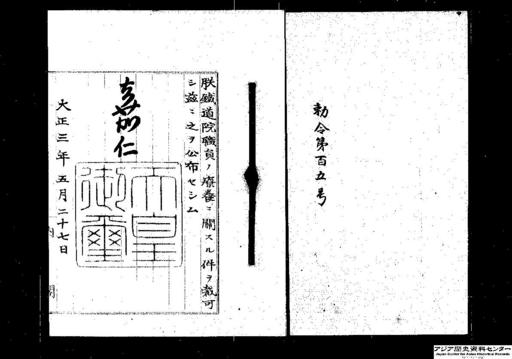 勅令第百五号
朕鐵道院職員ノ療養ニ關スル件ヲ裁可
シ茲ニ之ヲ公布セシム
嘉仁
天皇
御璽
大正三年五月二十七日
アジア歴史資料センター
Japan Center for Asian Historical Records